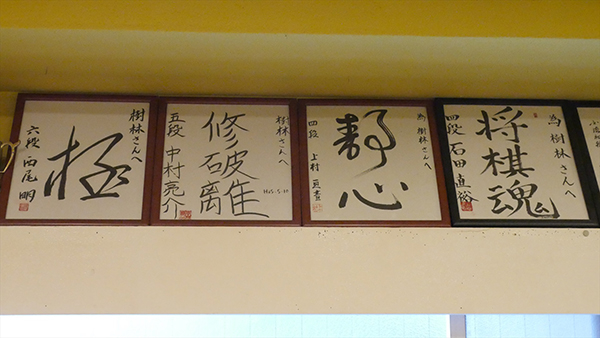 樹林さんへ
極
六段 西尾 明
樹林さんへ
修破離
五段 中村亮介
為 樹林さんへ
静心
四段 上村 亘
為 樹林さんへ
将棋魂
四段 石田直裕